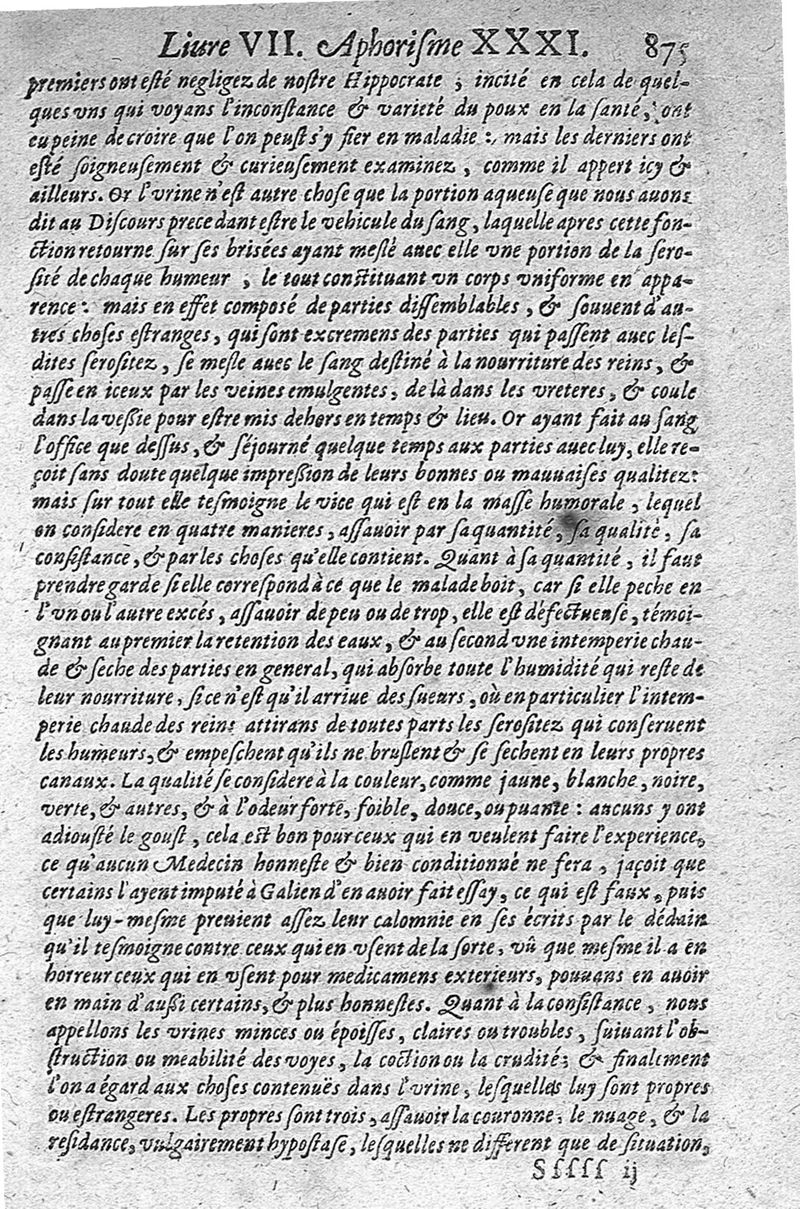 Liure VII. Aphorisme XXXI. 875
premiers ont esté negligez de nostre Hippocrate ; incité en cela de quel-
ques vns qui voyans l'inconstance & varieté du poux en la santé, ont
eu peine de croire que l'on peust s'y fier en maladie : mais les derniers ont
esté soigneusement & curieusement examinez, comme il appert icy &
ailleurs. Or l'vrine n'est autre chose que la portion aqueuse que nous auons
dit au Discours precedant estre le vehicule du sang, laquelle apres cette fon-
ction retourne sur ses brisées ayant meslé auec elle vne portion de la sero-
sité de chaque humeur , le tout constituant vn corps vniforme en appa-
rence : mais en effet composé de parties dissemblables , & souuent d'au-
tres choses estranges, qui sont excremens des parties qui passent auec les-
dites serositez, se mesle auec le sang destiné à la nourriture des reins, &
passe en iceux par les veines emulgentes, de là dans les vreteres, & coule
dans la vessie pour estre mis dehors en temps & lieu. Or ayant fait au sang
l'office que dessus, & séjourné quelque temps aux parties auec luy, elle re-
çoit sans doute quelque impression de leurs bonnes ou mauuaises qualitez:
mais sur tout elle tesmoigne le vice qui est en la masse humorale , lequel
on considere en quatre manieres, assauoir par sa quantité, sa qualité, sa
consistance, & par les choses qu'elle contient. Quant à sa quantité, il faut
prendre garde si elle correspond à ce que le malade boit, car si elle peche en
l'vn ou l'autre excés, assauoir de peu ou de trop, elle est défectueuse, témoi-
gnant au premier la retention des eaux, & au second vne intemperie chau-
de & seche des parties en general, qui absorbe toute l'humidité qui reste de
leur nourriture, si ce n'est qu'il arriue des sueurs, où en particulier l'intem-
perie chaude des reins attirans de toutes parts les serositez qui conseruent
les humeurs, & empeschent qu'ils ne bruslent & se sechent en leurs propres
canaux. La qualité se considere à la couleur, comme jaune, blanche, noire,
verte, & autres, & à l'odeur forte, foible, douce, ou puante : aucuns y ont
adiousté le goust, cela est bon pour ceux qui en veulent faire l'experience,
ce qu'aucun Medecin honneste & bien conditionné ne fera, jaçoit que
certains l'ayent imputé à Galien d'en auoir fait essay, ce qui est faux, puis
que luy-mesme preuient assez leur calomnie en ses écrits par le dédain
qu'il tesmoigne contre ceux qui en vsent de la sorte, vû que mesme il a en
horreur ceux qui en vsent pour medicamens exterieurs, pouuans en auoir
en main d'aussi certains, & plus honnestes. Quant à la consistance, nous
appellons les vrines minces ou époisses, claires ou troubles, suiuant l'ob-
struction ou meabilité des voyes, la coction ou la crudité; & finalement
l'on a égard aux choses contenuës dans l'vrine, lesquelles luy sont propres
ou estrangeres. Les propres sont trois, assauoir la couronne, le nuage, & la
residance, vulgairement hypostase, lesquelles ne different que de situation,
Sssss ij